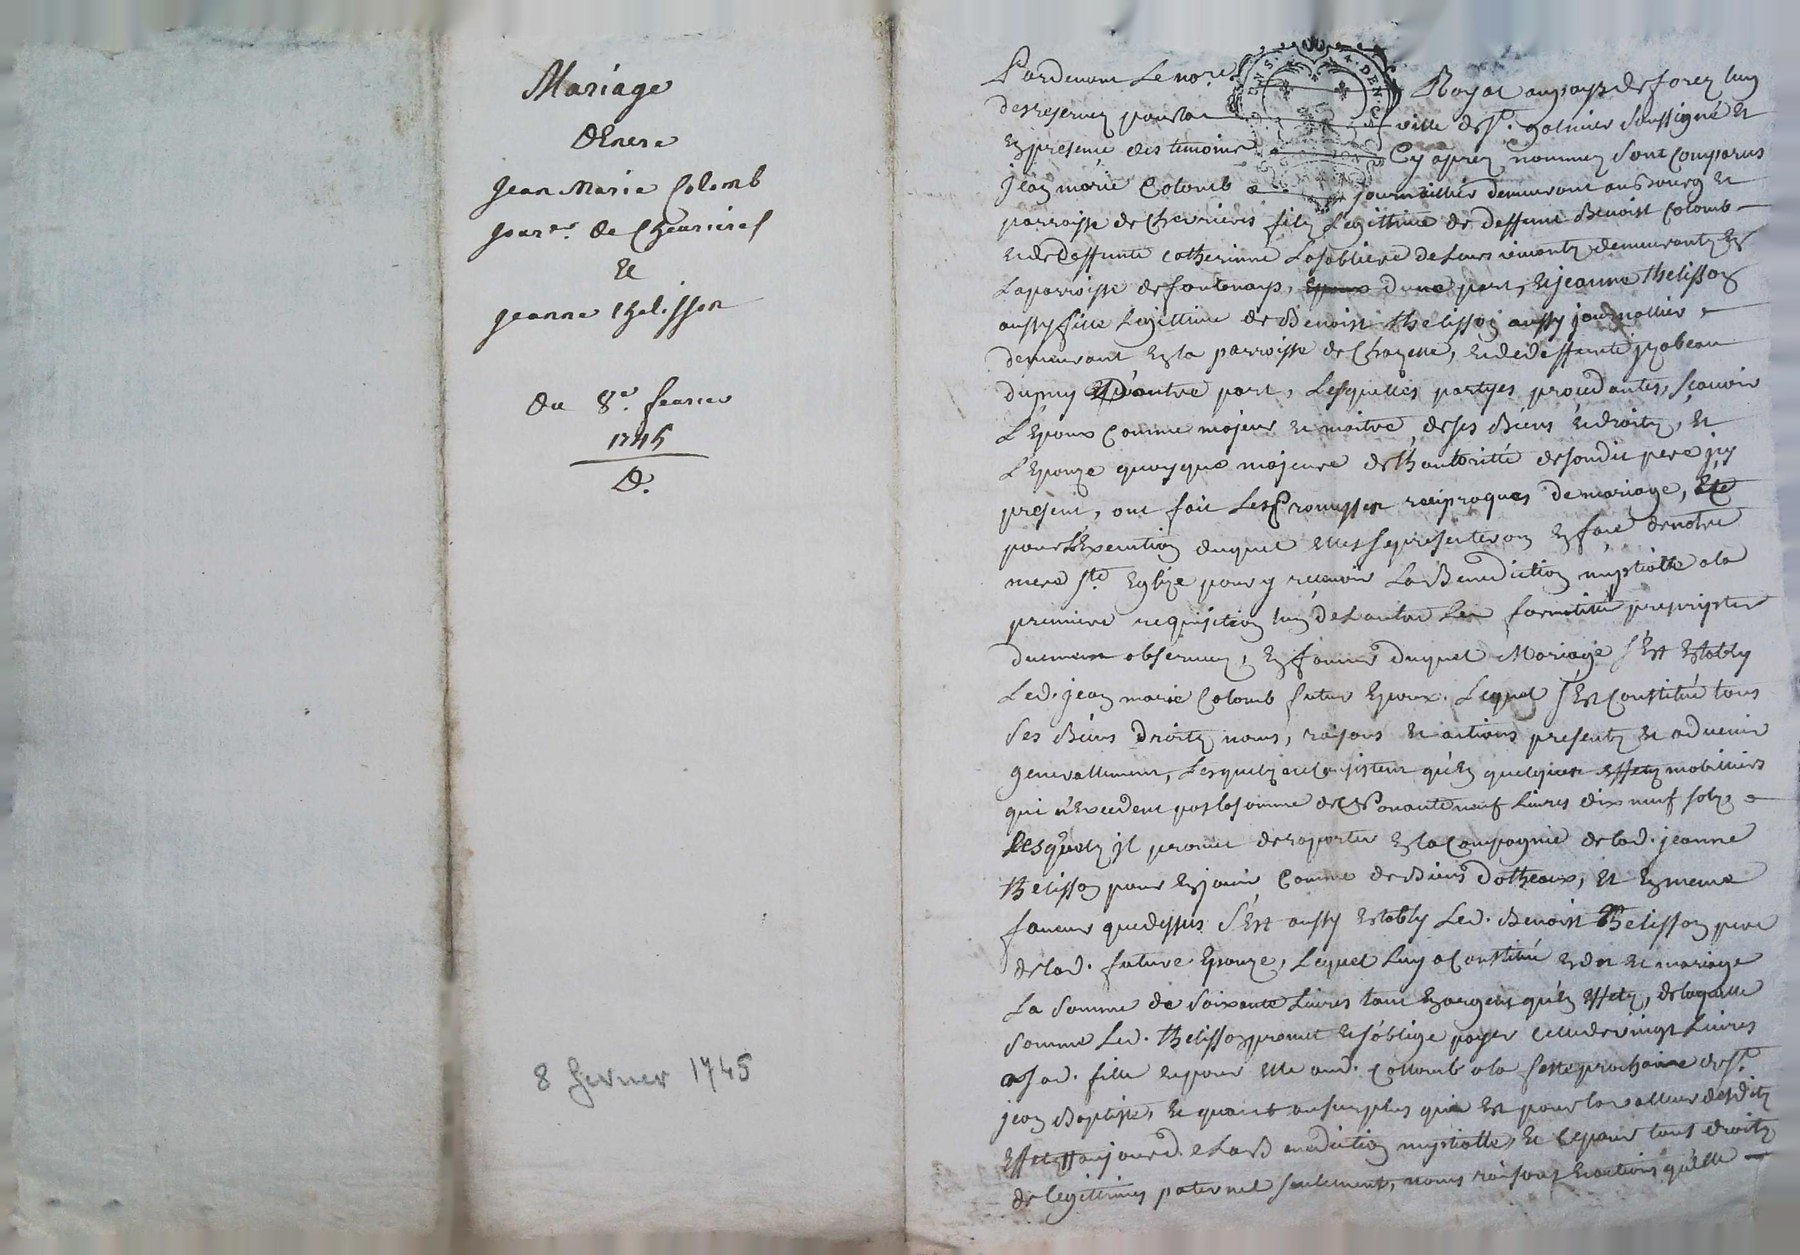 Mariage
D'Entre
Jean Marie Colomb
jour.er de Chevrieres
Et
Jeanne thelisson
du 8e. fevrier
1745
D.
8 fevrier 1745
Pardevant Le no.re Royal au pays de forez lun
des reservez pour la ville de St. galmier soussigné Et
En presence des temoins Cy apres nommez sont Comparus
jean marie Colomb journaillier demeurant au Bourg Et
parroisse de Chevrieres fils Legittime de deffunt Benoist Colomb
et de deffunte catherinne Lasabliere de Leurs vivants demeurants En
La parroisse de fontenays, dune part, Et jeanne thelisson
aussy fille Legittime de Benoist thelisson aussy journallier
demeurant En la parroisse de Chazelle, et de deffunte jzabeau
dupuy D'autre part, Lesquelles partyes procedantes, scavoir
L'Epoux Comme majeur et maitre de ses Biens et droits, Et
L'Epouze quoyque majeure de Lautoritté de sondit pere jcy
present, ont fait Les Promesses reciproques de mariage,
pour L'Execution duquel Elles se presenteron En face de notre
mere Ste. Eglize pour y recevoir La Benediction nuptialle a la
premiere requisition lun de Lautre Les formalités prescriptes
duement observez, En faveur duquel Mariage s'Est Etably
Led. jean marie Colomb futur Epoux. Lequel s'Est Constitué tous
ses Biens Droits noms, raisons et actions presents et advenir
generallement, Lesquels ne Consistent qu'En quelques Effets mobilliers
qui n'Excedent pas la somme de Nonante neuf Livres dix neuf sols,
Lesquels jl promet de raporter En la Compagnie de lad. jeanne
thelisson pour En jouir Comme de Biens dotheaux, Et En meme
faveur que dessus s'Est aussy Etably Led. Benoist Thelisson pere
de lad. future Epouze, Lequel Luy a Constitué En dot et mariage
La somme de soixante Livres tant En argent qu'En Effets, de laquelle
somme Led. thelisson promet et s'oblige payer celle de vingt Livres
a sad. fille et pour Elle aud. Collomb a la feste prochaine de St.
jean Baptiste, Et quant au surplus qui Est pour la valleur desdits
Effets au jour de La Benediction nuptialle, Et ce pour tous droits
de Legittimes paternel seulement, noms raisons Et actions qu'Elle